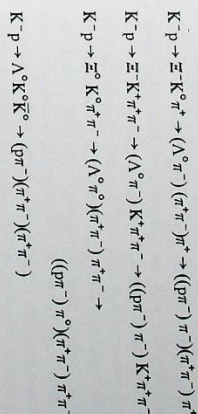 K⁻p → Ξ⁻K⁰π⁺ → (Λ⁰π⁻)(π⁺π⁻)π⁺ → ((pπ⁻)π⁻)(π⁺π⁻)π⁺
K⁻p → Ξ⁻K⁺π⁺π⁻ → (Λ⁰π⁻)K⁺π⁺π⁻ → ((pπ⁻)π⁻)K⁺π⁺π⁻
K⁻p → Ξ⁰K⁰π⁺π⁻ → (Λ⁰π⁰)(π⁺π⁻)π⁺π⁻ →
((pπ⁻)π⁰)(π⁺π⁻)π⁺π⁻
K⁻p → Λ⁰K⁰K̄⁰ → (pπ⁻)(π⁺π⁻)(π⁺π⁻)